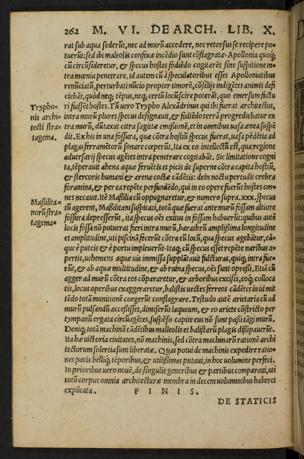 262 M. VI. DE ARCH. LIB. X.
rat sub aqua sederūt, nec ad murū accedere, nec retorsus se recipere po-
tuerūt: sed ibi maleolis confixæ incēdio sunt cōflagratæ. Apollonia quoq;
cū circūsideretur, & specus hostes fodiēdo cogitarēt sine suspitione in-
tra mœnia penetrare, id autem cū à speculatoribus esset Apolloniatibus
renūciatū, perturbati nūcio propter timorē, cōsilijs indigētes animis defi-
ciebāt, quòd neq; tēpus, neq; certū locū scire poterāt, quo emersum factu
ri fuissēt hostes. Tū uero Trypho Alexādrinus qui ibi fuerat architectus,
intra murū plures specus designauit, & fodiēdo terrā progrediebatur ex
tra murū, dūtaxat citra sagittæ emissionē, et in omnibus uasa ænea suspē
dit. Ex his in una fossura, quæ cōtra hostiū specus fuerat, uasa pēdētia ad
plagas ferramētorū sonare cœperūt. Ita ex eo intellectū est, qua regione
aduersarij specus agētes intra penetrare cogitabāt. Sic limitatione cogni
ta, tēperauit ahena aquæ feruētis et picis de superne cōtra capita hostiū,
& stercoris humani & arenæ coctæ cādētis: dein noctu pertudit crebra
foramina, & per ea repēte perfundēdo, qui in eo opere fuerūt hostes om-
nes necauit. Itē Massiliā cū oppugnarētur, & numero supra .xxx. specus
agerent, Massilitani suspicati, totā quæ fuerat ante murū fossam altiore
fossura depresserūt, ita specus oēs exitus in fossam habuerūt: quibus autē
locis fossa nō potuerat fieri intra murū, barathrū amplissima longitudine
et amplitudine, uti piscinā fecerūt cōtra eū locū, qua specus agebātur, eā-
que è puteis & è portu impleuerūt. Itaq; cū specus esset repētè naribus a-
pertis, uehemens aquæ uis immissa supplātauit fulcturas, quiq; intra fue-
rūt, & ab aquæ multitudine, et ab ruina specus, oēs sunt opressi. Etiā cū
agger ad murū cōtra eos cōpararetur, & arboribus excisis, eoq; collocа
tis, locus operibus exaggeraretur, balistis uectes ferreos cādētes in id mit
tēdo totā munitionē coegerūt conflagrare. Testudo autē arietaria cū ad
murū pulsandū accessisset, dimiserūt laqueum, & eo ariete cōstricto per
tympanū ergata circūagētes, suspēso capite eius nō sunt passi tāgi murū.
Deniq; totā machinā cādētibus malleolis et balistarū plagis dissipauerūt.
Ita hæ uictoria ciuitates, nō machinis, sed cōtra machinarū rationē archi
tectorum solertia sunt liberatæ. Quas potui de machinis expedire ratio-
nes pacis belliq; tēporibus, & utilissimas putaui, in hoc uolumine perfeci.
In prioribus uero nouē, de singulis generibus & partibus comparaui, uti
totū corpus omnia architecturæ membra in decem uoluminibus haberet
explicata.
F I N I S.
DE STATICIS
Trypho-
nis archi-
tecti stra-
tagema.
Massilita-
norū stra-
tagema